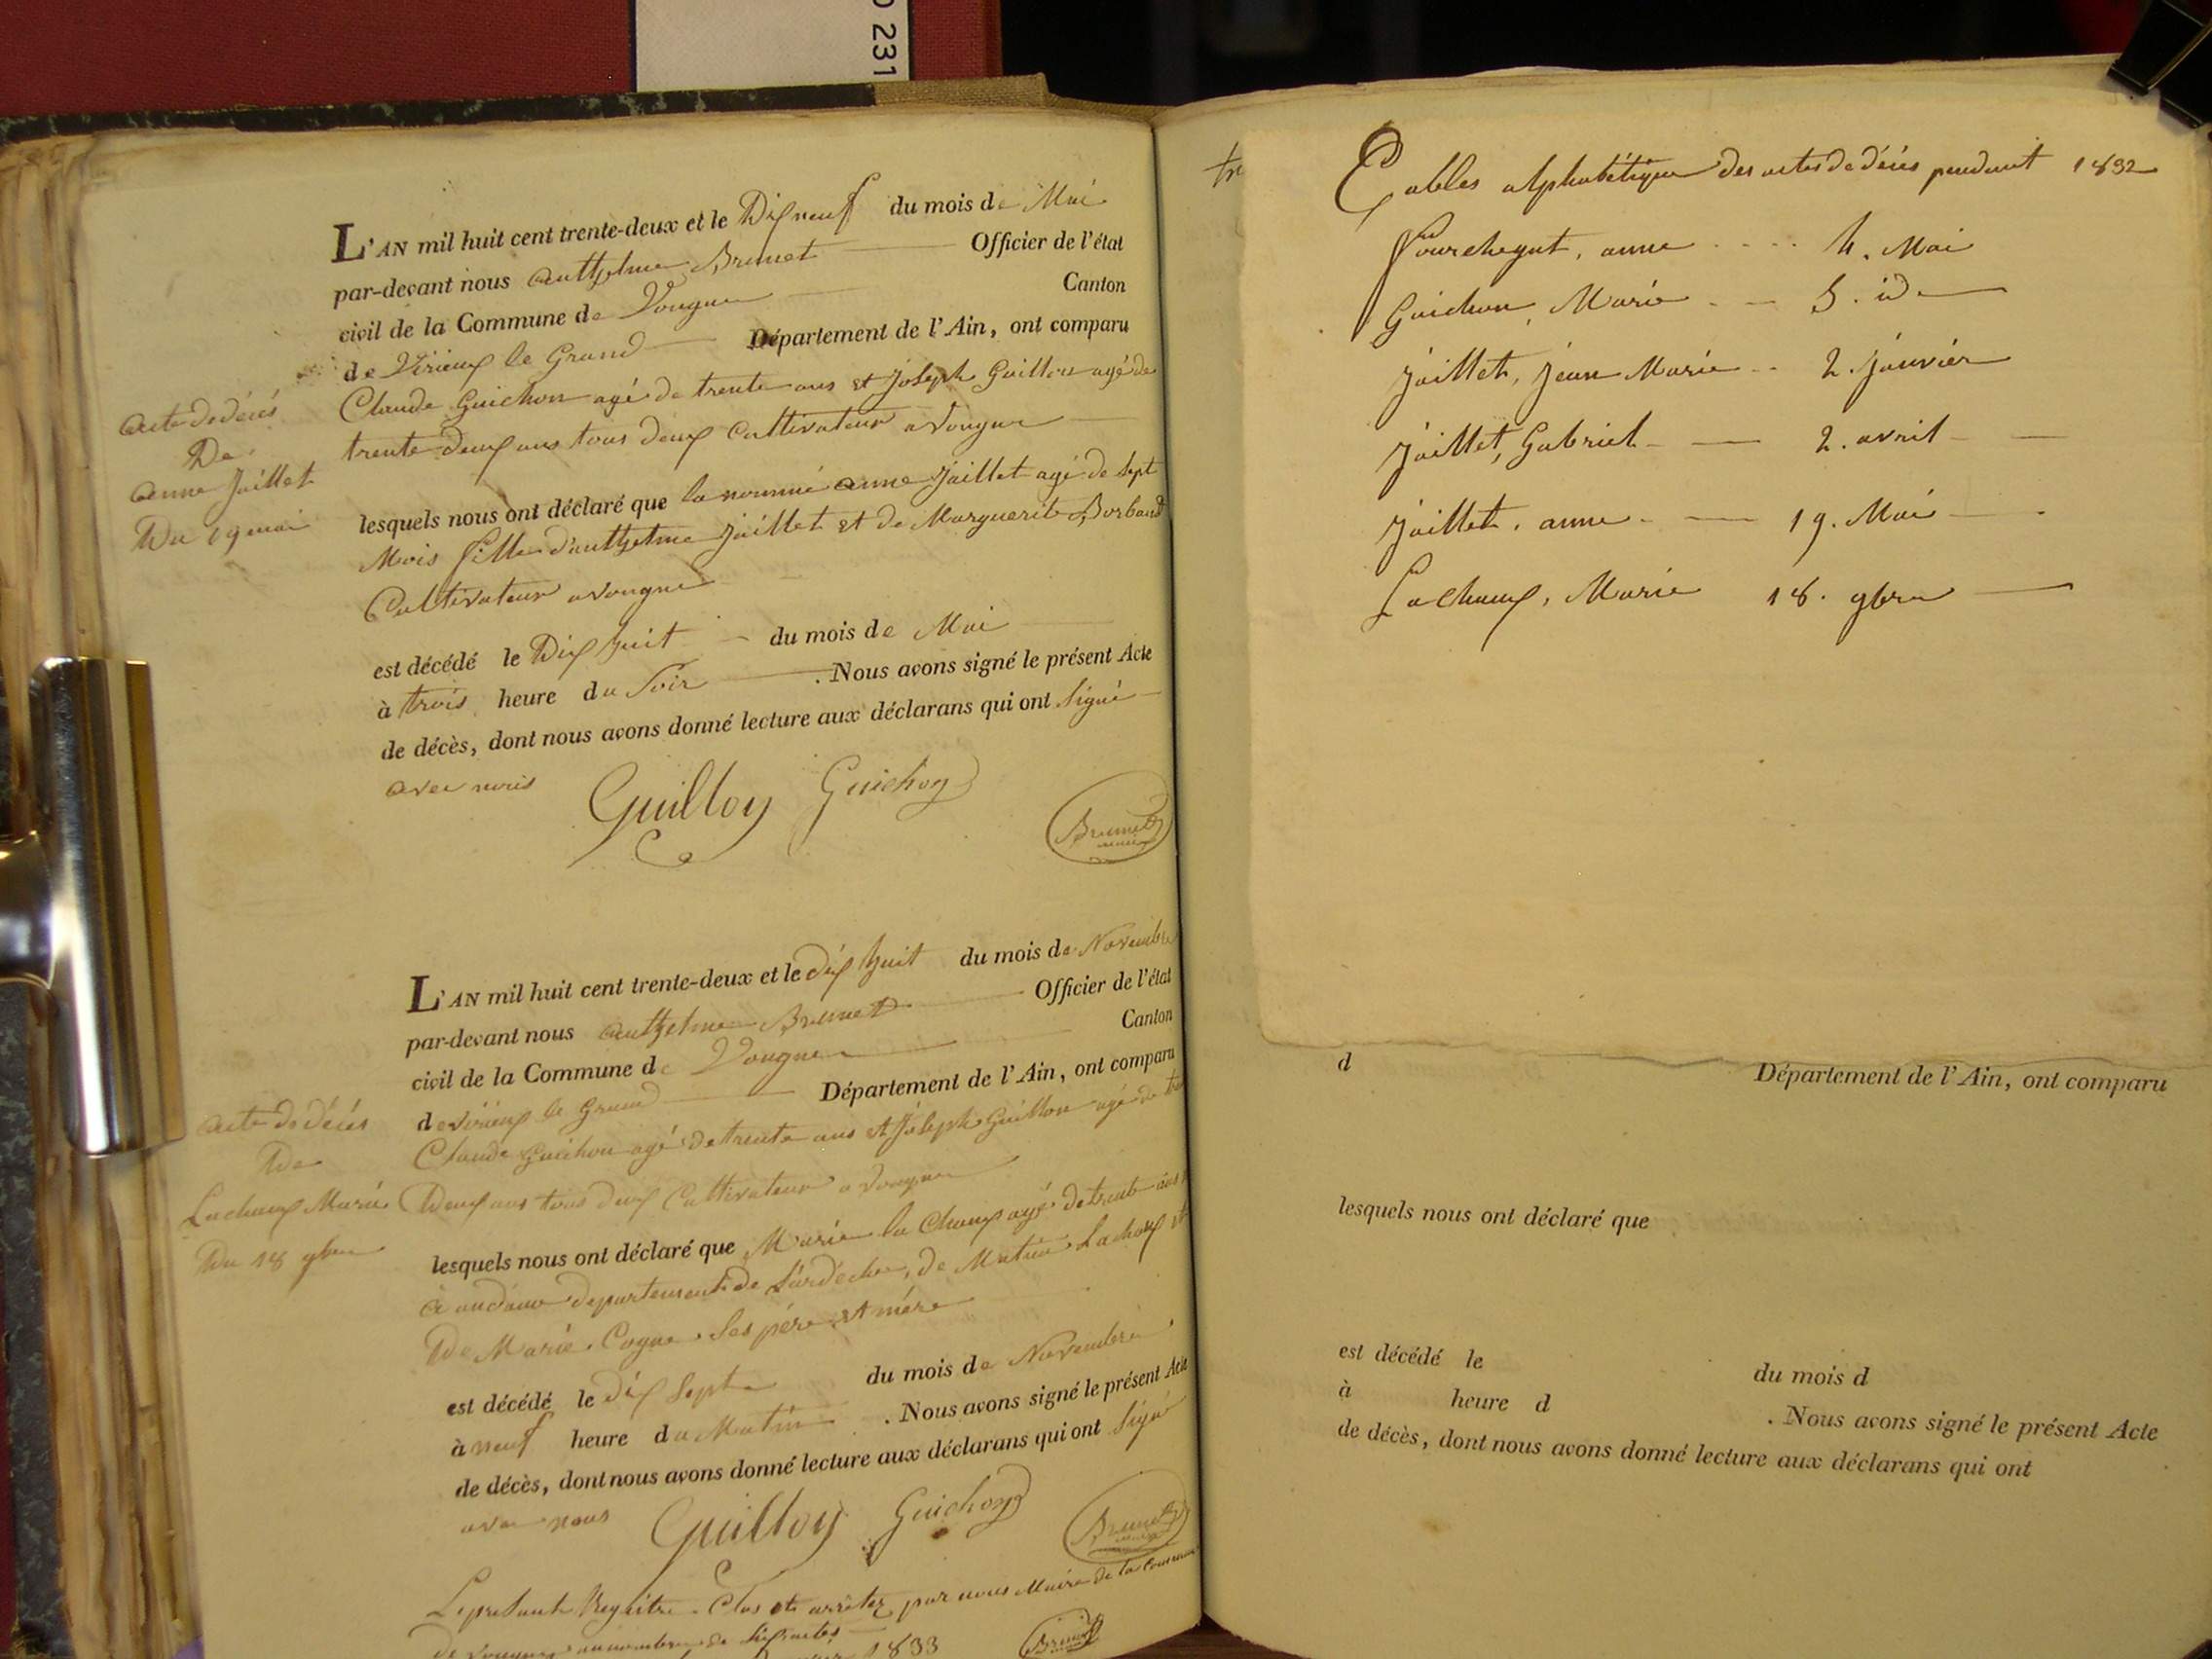 0 231
L'AN mil huit cent trente-deux et le Dix neuf du mois de Mai
par-devant nous anthelme Brunet Officier de l'état
civil de la Commune de Vongne Canton
de Virieux le Grand Département de l'Ain, ont comparu
Claude Guichon agé de trente ans et Joseph Guillon agé de
trente deux ans tous deux Cultivateur a vongne
acte de décés
De
anne Juillet
Du 19 mai
lesquels nous ont déclaré que la nommé anne Juillet agé de sept
Mois fille d'anthelme Juillet et de Marguerite Borband
Cultivateur a vongne
est décédé le Dix huit du mois de Mai
à trois heure du Soir . Nous avons signé le présent Acte
de décès, dont nous avons donné lecture aux déclarans qui ont Signé
avec nous
Guilloy Guichon
Brunet
maire
L'AN mil huit cent trente-deux et le dix huit du mois de Novembre
par-devant nous anthelme Brunet Officier de l'état
civil de la Commune de Vongne Canton
de virieux le Grand Département de l'Ain, ont comparu
Claude Guichon agé de trente ans et Joseph Guillon agé de
Deux ans tous deux Cultivateur a vongne
acte de décés
De
Lachaux Marie
Du 18 9bre
lesquels nous ont déclaré que Marie la Chaux agé de trente ans
à departement de L'ardeche, de Lachaux et
De Marie Cogne Ses pére et mére
est décédé le dix Sept du mois de Novembre
à neuf heure du Matin . Nous avons signé le présent Acte
de décès, dont nous avons donné lecture aux déclarans qui ont Signé
avec nous
Guilloy Guichon
Brunet
maire
Le présent Régitre Clos et arrêter par nous Maire de la Commune
de vongne au nombre de Six actes
1833 Brunet
Tables alphabétique des actes de décés pendant 1832
Fourcheyut, anne 4. Mai
Guichon, Marie 5. id
Juillet, Jean Marie 2. Janvier
Juillet, Gabriel 2. avril
Juillet, anne 19. Mai
Lachaux, Marie 18. 9bre
d Département de l'Ain, ont comparu
lesquels nous ont déclaré que
est décédé le du mois d
à heure d . Nous avons signé le présent Acte
de décès, dont nous avons donné lecture aux déclarans qui ont